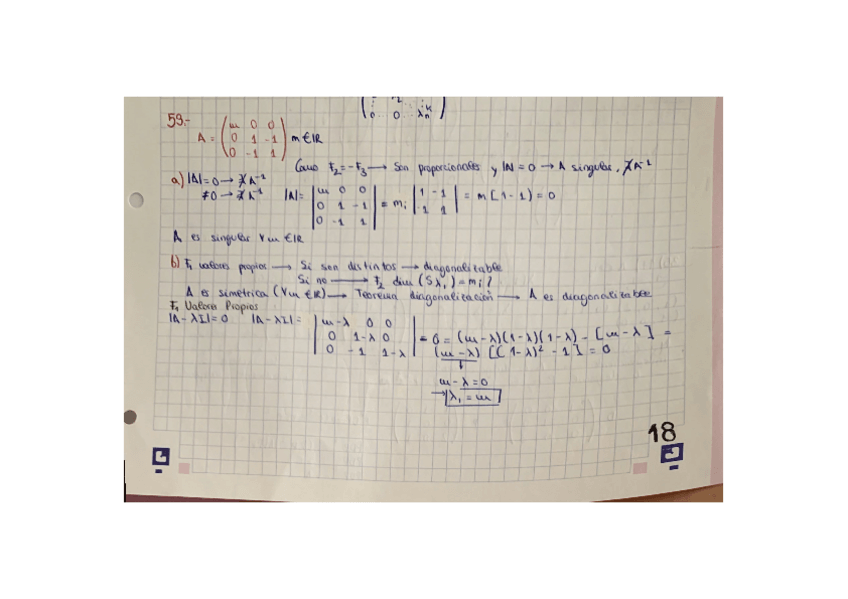 0 .. 0 .. λₙᵏ
59.-
A = ( m 0 0
0 1 -1
0 -1 1 ) m ∈ ℝ
Como F₂ = -F₃ → Son proporcionales y |A| = 0 → A singular, ∄ A⁻¹
a) |A| = 0 → ∄ A⁻¹
≠ 0 → ∄ A⁻¹
|A| = | m 0 0
0 1 -1
0 -1 1 | = m; | 1 -1
-1 1 | = m [1 - 1) = 0
A es singular ∀m ∈ ℝ
b) F₁ valores propios → Si son distintos → diagonalizable
Si no → F₂ dim (Sλ₁) = mᵢ?
A es simetrica (∀m ∈ ℝ) → Teorema diagonalización → A es diagonalizable
F₁ Valores Propios
|A - λI| = 0 |A - λI| = | m-λ 0 0
0 1-λ 0
0 -1 1-λ | = 0 = (m-λ)(1-λ)(1-λ) - [m-λ] =
(m-λ) [(1-λ)² - 1] = 0
↓
m - λ = 0
→ λ₁ = m
18